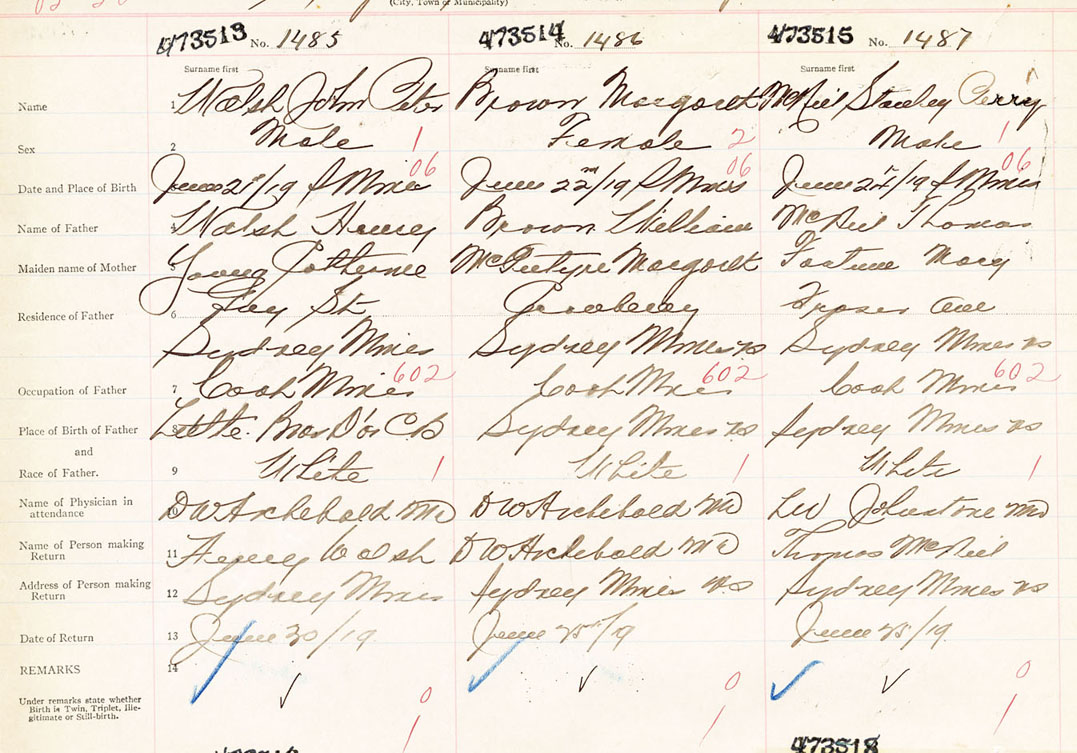 (City, Town or Municipality)
473513 No. 1485 473514 No. 1486 473515 No. 1487
Surname first Surname first Surname first
Name 1 Walsh John Peter Brown Margaret McNeil Stanley Perry
Sex 2 Male 1 Female 2 Male 1
06 06 06
Date and Place of Birth June 21st/19 S Mines June 22nd/19 S Mines June 24/19 S Mines
Name of Father 4 Walsh Henry Brown William McNeil Thomas
Maiden name of Mother 5 Young Catherine McIntyre Margaret Fortune Mary
Residence of Father 6 St Cranberry Fraser Ave
Sydney Mines Sydney Mines NS Sydney Mines NS
602 602 602
Occupation of Father 7 Coal Mines Coal Mines Coal Mines
Place of Birth of Father 8 Little Bras D'or CB Sydney Mines NS Sydney Mines NS
and
Race of Father. 9 White 1 White 1 White 1
Name of Physician in
attendance 10 DW Archebald MD DW Archibald MD LW Johnstone MD
Name of Person making
Return 11 Henry Walsh DW Archebald MD Thomas McNeil
Address of Person making
Return 12 Sydney Mines Sydney Mines NS Sydney Mines NS
Date of Return 13 June 30/19 June 25th/19 June 25/19
REMARKS 14
Under remarks state whether
Birth is Twin, Triplet, Ille-
gitimate or Still-birth.
0 0 0
1 1 1
473518